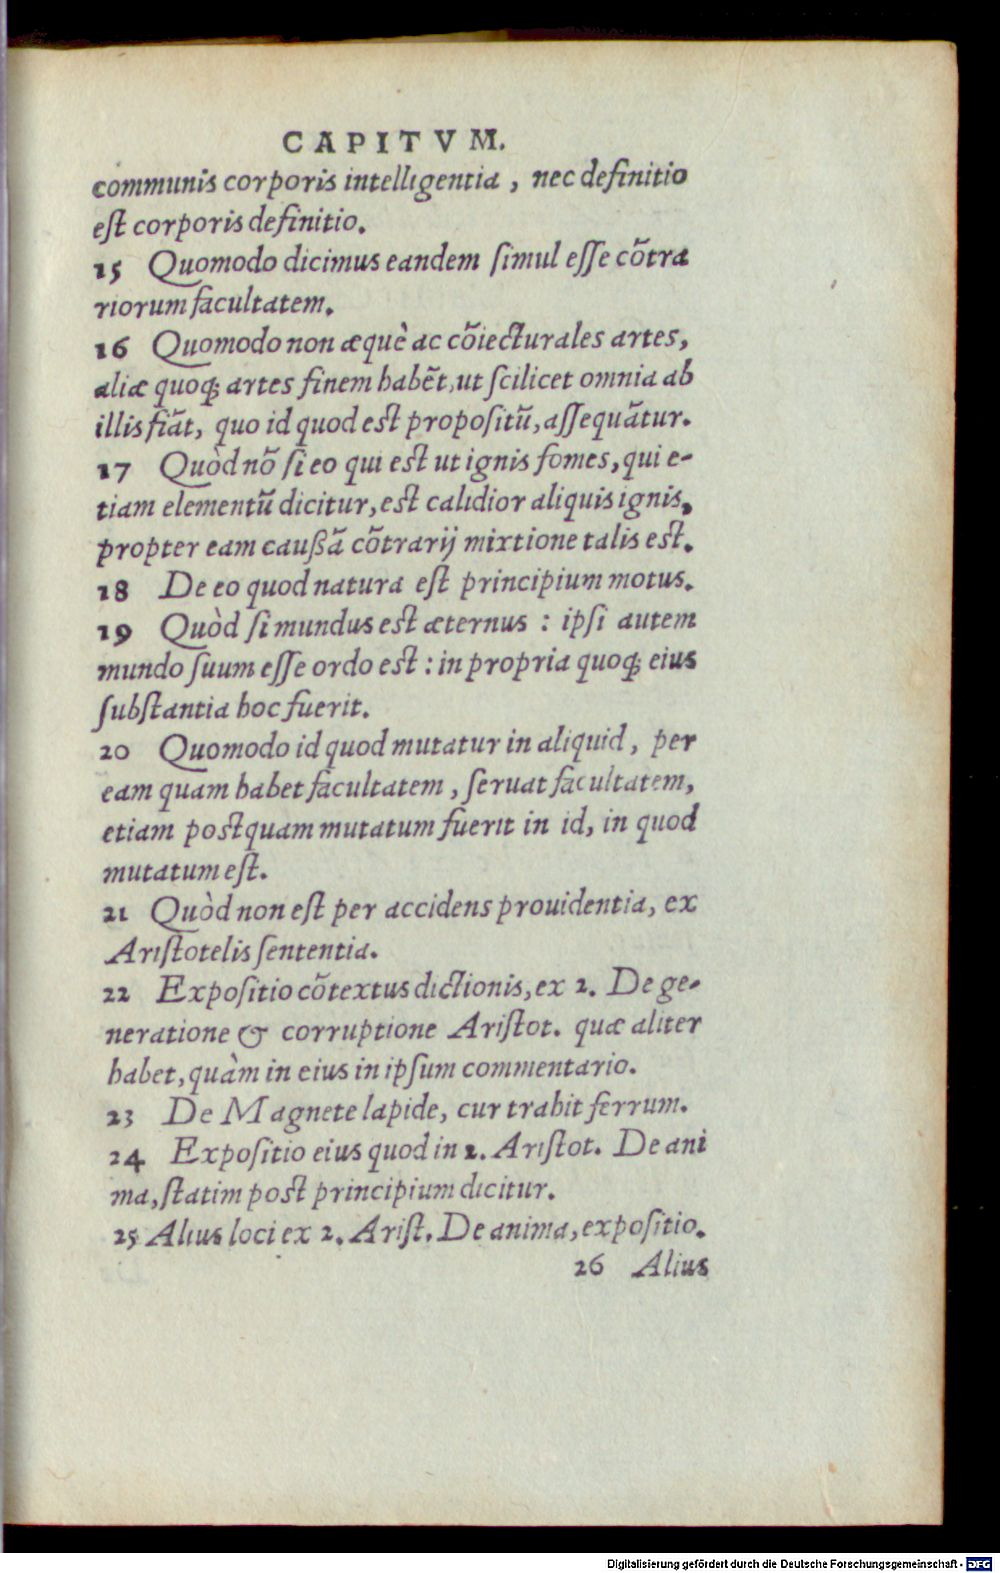 CAPITVM.
communis corporis intelligentia, nec definitio
est corporis definitio.
15 Quomodo dicimus eandem simul esse cõtra
riorum facultatem.
16 Quomodo non æquè ac cõiecturales artes,
aliæ quoq; artes finem habẽt, ut scilicet omnia ab
illis fiãt, quo id quod est propositũ, assequãtur.
17 Quòd nõ si eo qui est ut ignis fomes, qui e-
tiam elementũ dicitur, est calidior aliquis ignis,
propter eam caußã cõtrarij mixtione talis est.
18 De eo quod natura est principium motus.
19 Quòd si mundus est æternus : ipsi autem
mundo suum esse ordo est : in propria quoq; eius
substantia hoc fuerit.
20 Quomodo id quod mutatur in aliquid, per
eam quam habet facultatem, seruat facultatem,
etiam postquam mutatum fuerit in id, in quod
mutatum est.
21 Quòd non est per accidens prouidentia, ex
Aristotelis sententia.
22 Expositio cõtextus dictionis, ex 2. De ge-
neratione & corruptione Aristot. quæ aliter
habet, quàm in eius in ipsum commentario.
23 De Magnete lapide, cur trahit ferrum.
24 Expositio eius quod in 2. Aristot. De ani
ma, statim post principium dicitur.
25 Alius loci ex 2. Arist. De anima, expositio.
26 Alius
Digitalisierung gefördert durch die Deutsche Forschungsgemeinschaft - DFG